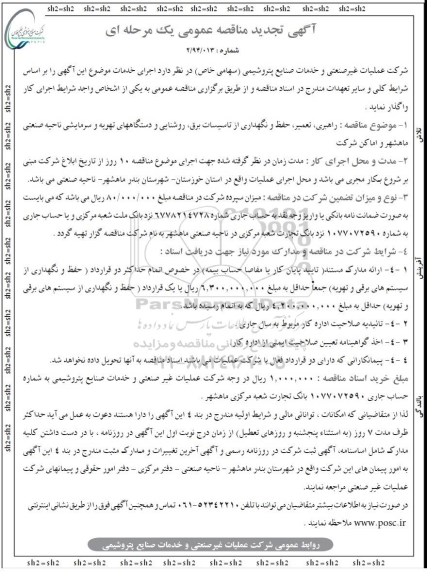 sh2=sh2 sh2=sh2 sh2=sh2 sh2=sh2 sh2=sh2 sh2=sh2
آگهی تجدید مناقصه عمومی یک مرحله ای
شماره : ۲/۹۴/۰۱۳
شرکت عملیات غیرصنعتی و خدمات صنایع پتروشیمی (سهامی خاص) در نظر دارد اجرای خدمات موضوع این آگهی را بر اساس
شرایط کلی و سایر تعهدات مندرج در اسناد مناقصه و از طریق برگزاری مناقصه عمومی به یکی از اشخاص واجد شرایط اجرای کار
واگذار نماید .
۱- موضوع مناقصه : راهبری، تعمیر، حفظ و نگهداری از تاسیسات برق، روشنایی و دستگاههای تهویه و سرمایشی ناحیه صنعتی
ماهشهر و اماکن شرکت
۲- مدت و محل اجرای کار : مدت زمان در نظر گرفته شده جهت اجرای موضوع مناقصه ۱۰ روز از تاریخ ابلاغ شرکت مبنی
بر شروع بکار مجری می باشد و محل اجرای عملیات واقع در استان خوزستان- شهرستان بندر ماهشهر- ناحیه صنعتی می باشد.
۳- نوع و میزان تضمین شرکت در مناقصه : میزان سپرده شرکت در مناقصه مبلغ ۸۰/۰۰۰/۰۰۰ ریال می باشد که می بایست
به صورت ضمانت نامه بانکی یا واریز وجه نقد به حساب جاری شماره ۶۷۷۸۲۱۴۷۲۸ نزد بانک ملت شعبه مرکزی و یا حساب جاری
به شماره ۱۰۷۷۰۷۲۵۹۰ نزد بانک تجارت شعبه مرکزی در ناحیه صنعتی ماهشهر به نام شرکت مناقصه گزار تهیه گردد .
۴- شرایط شرکت در مناقصه و مدارک مورد نیاز جهت دریافت اسناد :
۱-۴- ارائه مدارک مستند( تاییده پایان کار یا مفاصا حساب بیمه) در خصوص اتمام حداکثر دو قرارداد ( حفظ و نگهداری از
سیستم های برقی و تهویه) جمعاً حداقل به مبلغ ۶,۳۰۰,۰۰۰,۰۰۰ ریال یا یک قرارداد ( حفظ و نگهداری از سیستم های برقی
و تهویه) حداقل به مبلغ ۴,۲۰۰,۰۰۰,۰۰۰ ریال که به اتمام رسیده باشد
۲-۴- تائیدیه صلاحیت اداره کار مربوط به سال جاری
۳-۴- اخذ گواهینامه تعیین صلاحیت ایمنی از اداره کار
۴-۴- پیمانکارانی که دارای دو قرارداد فعال با شرکت عملیات می باشند اسناد مناقصه به آنها تحویل داده نخواهد شد.
مبلغ خرید اسناد مناقصه : ۱,۰۰۰,۰۰۰ ریال در وجه شرکت عملیات غیر صنعتی و خدمات صنایع پتروشیمی به شماره
حساب جاری ۱۰۷۷۰۷۲۵۹۰ بانک تجارت شعبه مرکزی ماهشهر .
لذا از متقاضیانی که امکانات ، توانائی مالی و شرایط اولیه مندرج در بند ٤ این آگهی را دارا هستند دعوت به عمل می آید حداکثر
ظرف مدت ۷ روز (به استثناء پنجشنبه و روزهای تعطیل) از زمان درج نوبت اول این آگهی در روزنامه ، با در دست داشتن کلیه
مدارک شامل اساسنامه، آگهی ثبت شرکت در روزنامه رسمی و آگهی آخرین تغییرات و مدارک مثبت مندرج در بند ٤ این آگهی
به امور پیمان های این شرکت واقع در شهرستان بندر ماهشهر - ناحیه صنعتی - دفتر مرکزی - دفتر امور حقوقی و پیمانهای شرکت
عملیات غیر صنعتی مراجعه نمایند.
در صورت نیاز به اطلاعات بیشتر متقاضیان می توانند با تلفن ۵۲۳۴۲۲۱۰-۰۶۱ تماس و همچنین آگهی فوق را از طریق نشانی اینترنتی
www.posc.ir ملاحظه نمایند .
روابط عمومی شرکت عملیات غیرصنعتی و خدمات صنایع پتروشیمی
sh2=sh2 sh2=sh2 sh2=sh2 sh2=sh2 sh2=sh2 sh2=sh2